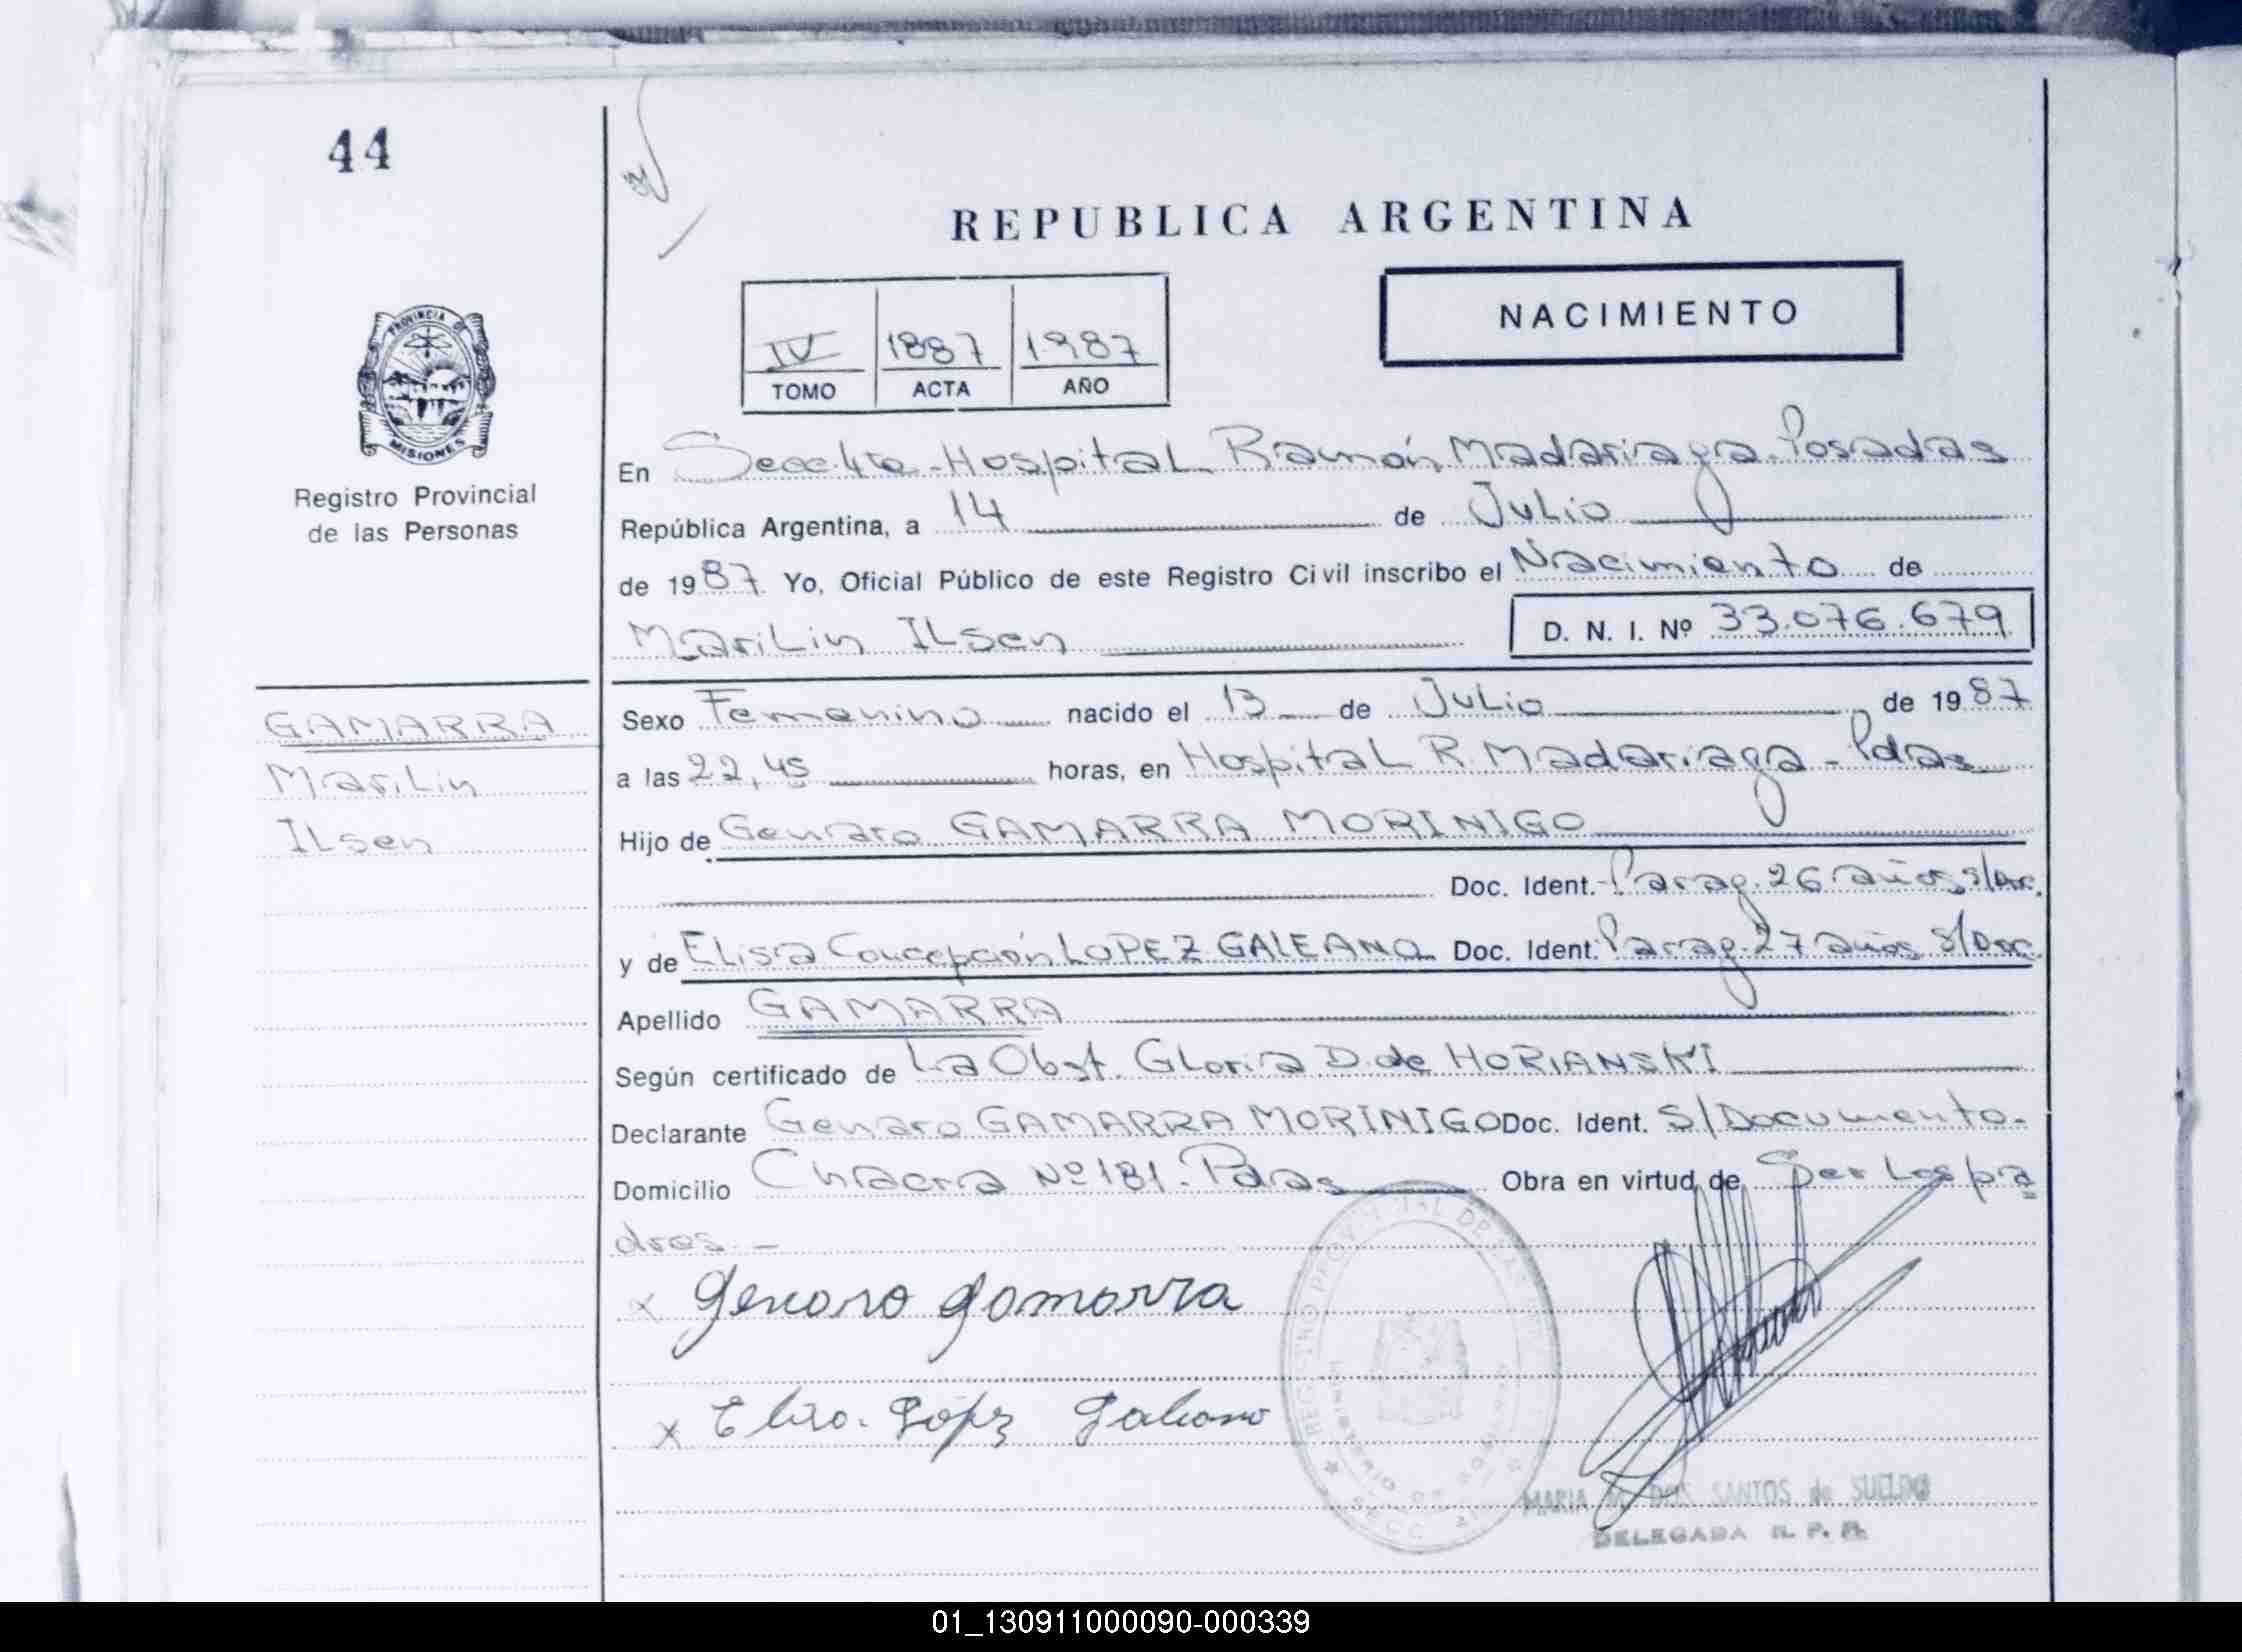 44
REPUBLICA ARGENTINA
IV 1887 1987
TOMO ACTA AÑO
NACIMIENTO
PROVINCIA DE
MISIONES
Registro Provincial
de las Personas
En Secc. 4ta - Hospital Ramón Madariaga - Posadas
República Argentina, a 14 de Julio
de 1987. Yo, Oficial Público de este Registro Civil inscribo el Nacimiento de
Marilin Ilsen D. N. I. Nº 33.076.679
GAMARRA
Marilin
Ilsen
Sexo Femenino nacido el 13 de Julio de 1987
a las 22,45 horas, en Hospital R. Madariaga - Pdas
Hijo de Genaro GAMARRA MORINIGO
Doc. Ident. Parag. 26 años s/Doc.
y de Elisa Concepción LOPEZ GALEANO Doc. Ident. Parag. 27 años S/Doc.
Apellido GAMARRA
Según certificado de La Obst. Gloria D. de HORIANSKI
Declarante Genaro GAMARRA MORINIGO Doc. Ident. S/Documento.
Domicilio Chacra Nº 181. Pdas Obra en virtud de Ser los pa
dres. -
x Genaro Gamarra
x Elisa. López Galeano
REGISTRO PROVINCIAL DE LAS
MINISTERIO DE GOBIERNO
SECC.
MARIA DOS SANTOS de SUELDO
DELEGADA R. P. P.
01_130911000090-000339